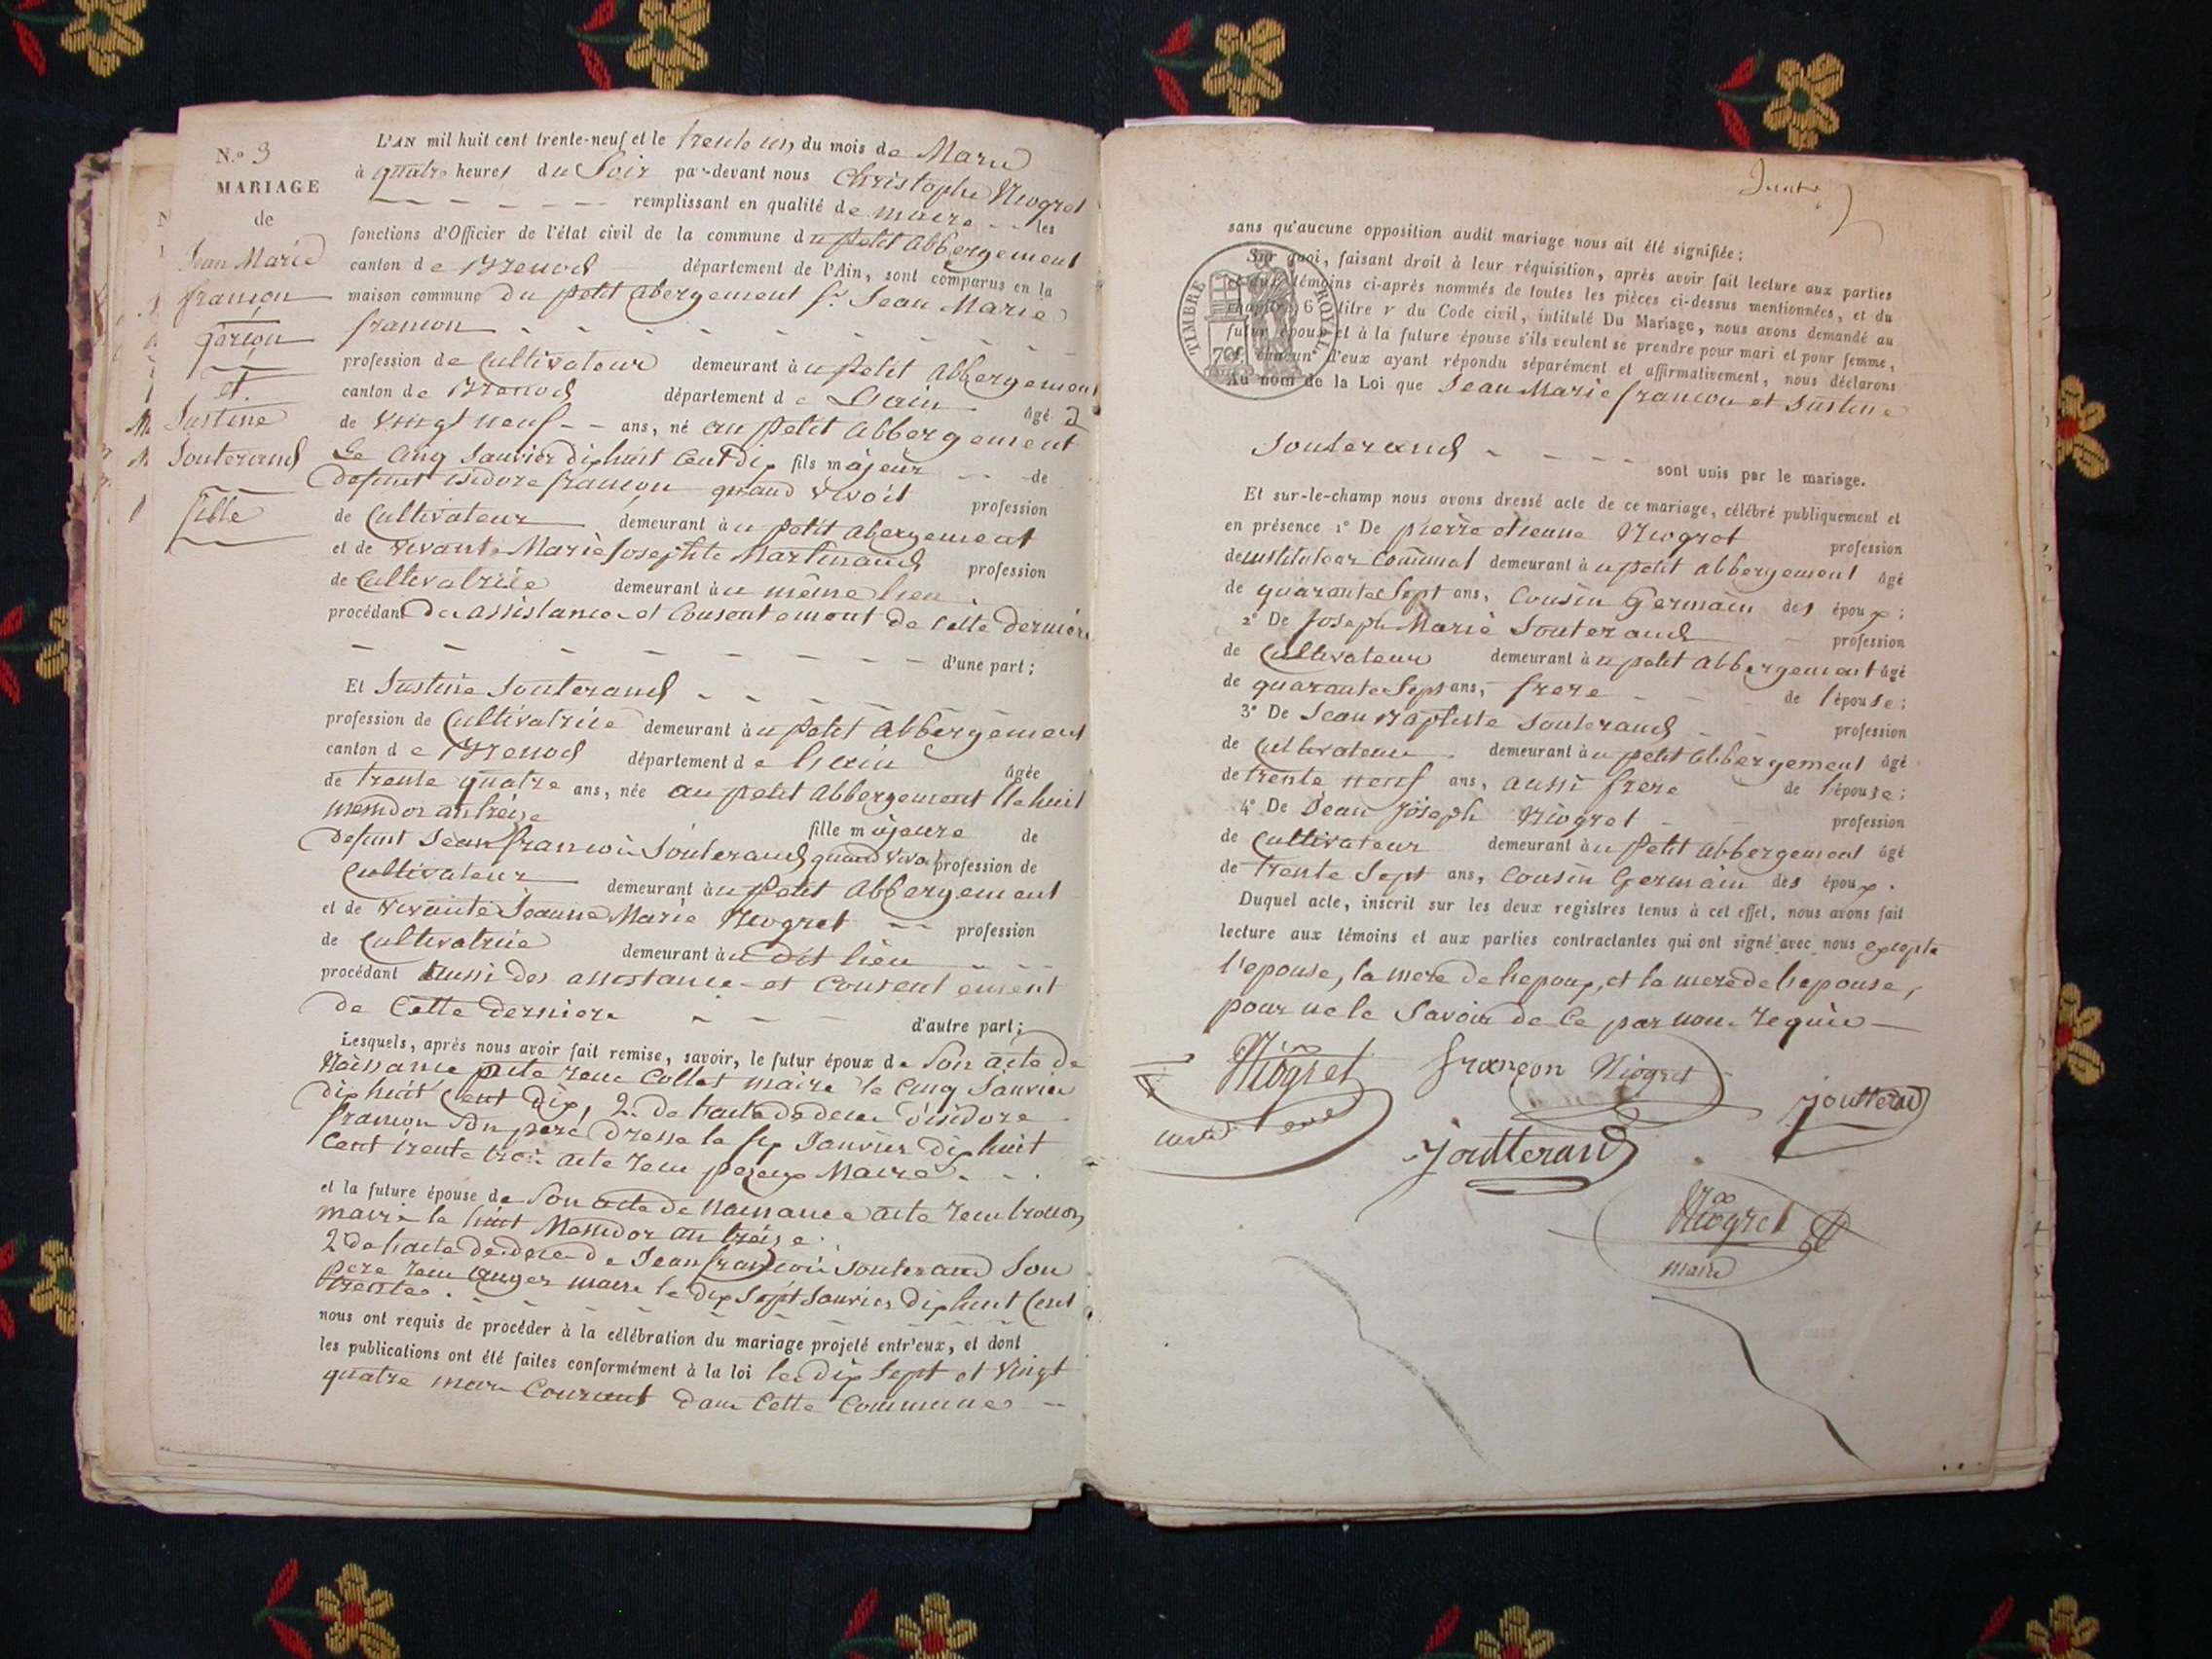 N.o 3
MARIAGE
de
Jean Marie
françon
garçon
et
Justine
Jouterand
fille
L'AN mil huit cent trente-neuf et le trente un, du mois de Mars
à quatre heures du Soir par-devant nous Christophe Niogret
remplissant en qualité de maire les
fonctions d'Officier de l'état civil de la commune du petit abbergement
canton de Brenod département de l'Ain, sont comparus en la
maison commune du petit abergement sr. Jean Marie
françon
profession de Cultivateur demeurant au petit abbergement
canton de Brenod département de L'ain âgé
de vingt neuf ans, né au petit abbergement
Le cinq Janvier dix huit cent dix fils majeur de
defunt isidore françon quand vivoit profession
de Cultivateur demeurant au petit abergement
et de vivante Marie Josephte Martinand profession
de Cultivatrice demeurant au même lieu
procédant de assistance et Consentement de cette derniere
d'une part;
Et Justine Jouterand
profession de Cultivatrice demeurant au petit abbergement
canton de Brenod département de L'ain âgée
de trente quatre ans, née au petit abbergement le huit
messidor an treize fille majeure de
defunt Jean françois Jouterand quand vivoit profession de
Cultivateur demeurant au petit abbergement
et de vivante Jeanne Marie Niogret profession
de Cultivatrice demeurant au dit lieu
procédant aussi des assistance et Consentement
de Cette derniere d'autre part;
Lesquels, après nous avoir fait remise, savoir, le futur époux de Son acte de
Naissance acte recu Collet maire le cinq Janvier
dix huit Cent dix, 2.o de l'acte de deces d'isidore
françon Son pere dressé le six Janvier dix huit
Cent trente trois acte recu Maire
et la future épouse de Son acte de naissance acte recu
maire le huit Messidor an treize
2.o de l'acte de deces de Jean françois Jouterand Son
pere recu auger maire le dix Sept Janvier dix huit Cent
trente.
nous ont requis de procéder à la célébration du mariage projeté entr'eux, et dont
les publications ont été faites conformément à la loi les dix Sept et Vingt
quatre mars Courant dans Cette Commune
sans qu'aucune opposition audit mariage nous ait été signifiée;
Sur quoi, faisant droit à leur réquisition, après avoir fait lecture aux parties
et aux témoins ci-après nommés de toutes les pièces ci-dessus mentionnées, et du
chapitre 6 titre v du Code civil, intitulé Du Mariage, nous avons demandé au
futur époux et à la future épouse s'ils veulent se prendre pour mari et pour femme,
et chacun d'eux ayant répondu séparément et affirmativement, nous déclarons
Au nom de la Loi que Jean Marie françon et Justine
TIMBRE ROYAL
70c.
Jouterand sont unis par le mariage.
Et sur-le-champ nous avons dressé acte de ce mariage, célébré publiquement et
en présence 1o De pierre etienne Niogret profession
de instituteur Communal demeurant au petit abbergement âgé
de quarante Sept ans, Cousin Germain des époux;
2o De Joseph Marie Jouterand profession
de Cultivateur demeurant au petit abbergement âgé
de quarante Sept ans, frere de l'épouse;
3o De Jean Baptiste Jouterand profession
de Cultivateur demeurant au petit abbergement âgé
de trente neuf ans, aussi frere de l'épouse;
4o De Jean Joseph Niogret profession
de Cultivateur demeurant au petit abbergement âgé
de trente Sept ans, Cousin Germain des époux.
Duquel acte, inscrit sur les deux registres tenus à cet effet, nous avons fait
lecture aux témoins et aux parties contractantes qui ont signé avec nous excepté
l'epouse, la mere de l'epoux, et la mere de l'epouse,
pour ne le Savoir de Ce par nous requis
Niogret françon Niogret Joutterand
Joutterand
Niogret
maire